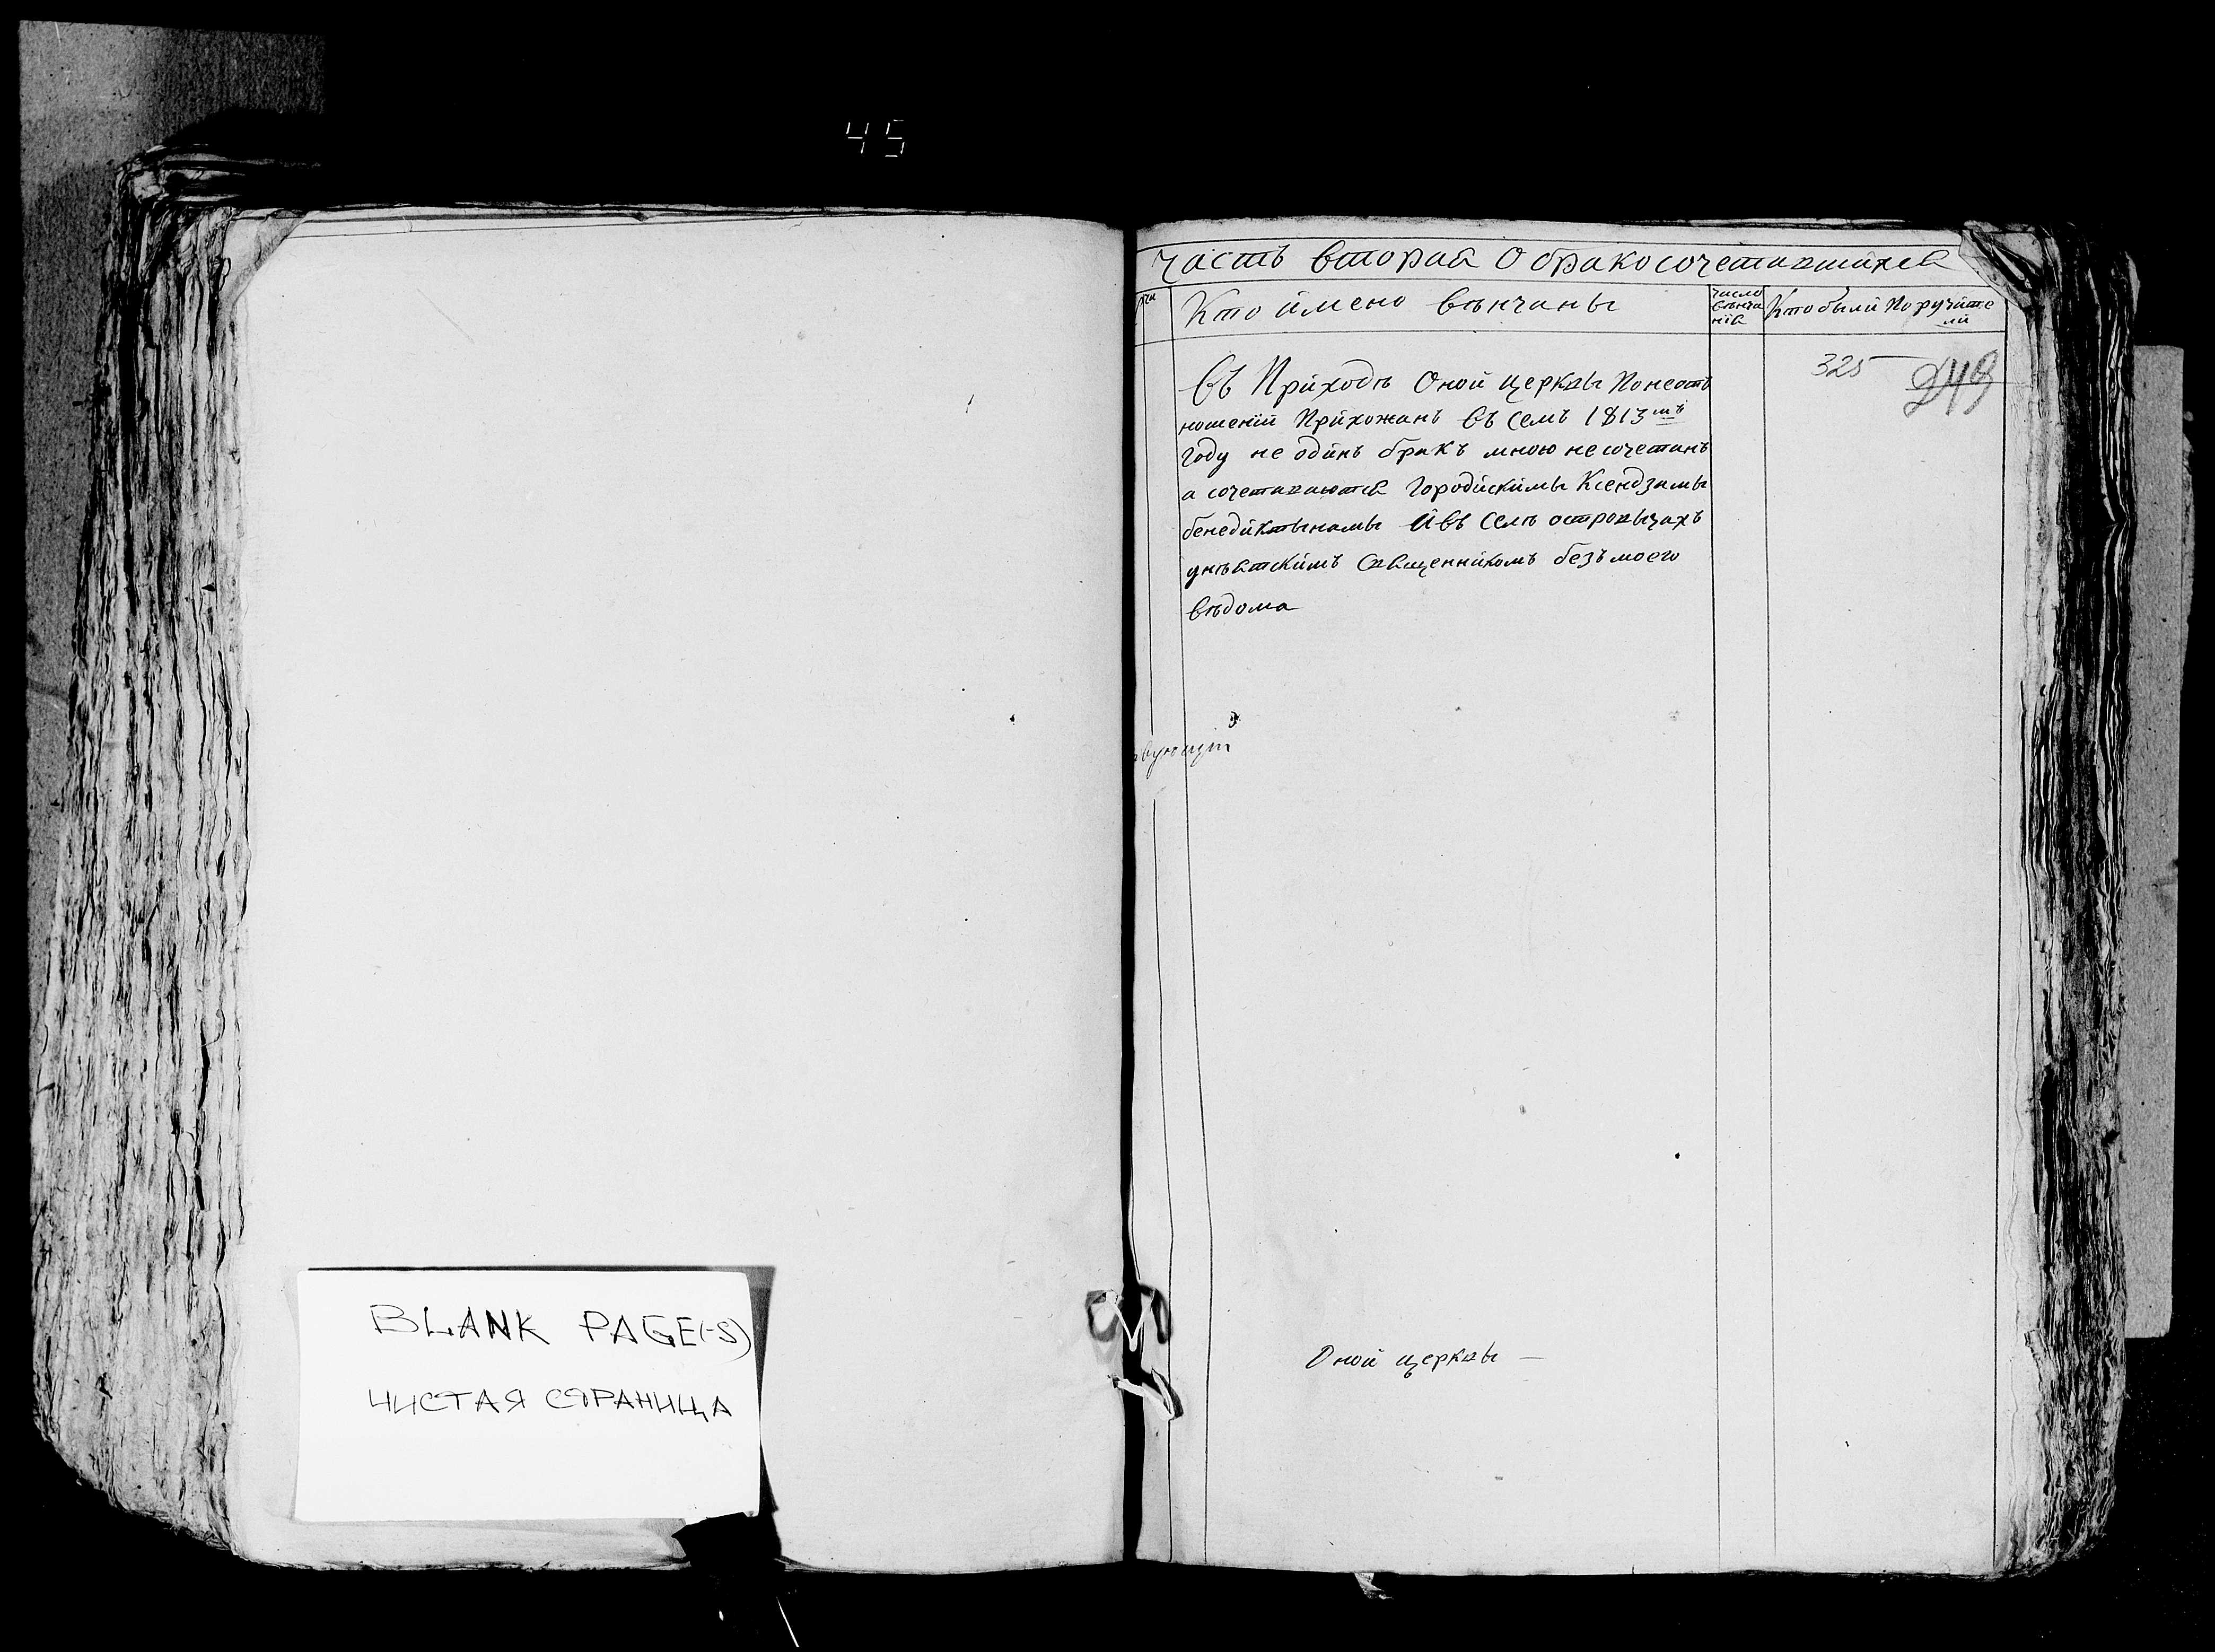 45
BLANK PAGE(-S)
ЧИСТАЯ СТРАНИЦА
Часть вторая О бракосочетавшихся
Кто имено венчаны
число
венча
нія
Кто были Поручите
ли
325
249
Въ Приходѣ Оной церквы Понеотъ
ношеній Прихожанъ въ семъ 1813мъ
году не одинъ бракъ мною не сочетанъ
а сочетаваются городискимы Ксендзамы
бенедиктынамы И въ селѣ островычахъ
унѣятскимъ священникомъ безъ моего
вѣдома
вующій
Оной церквы —